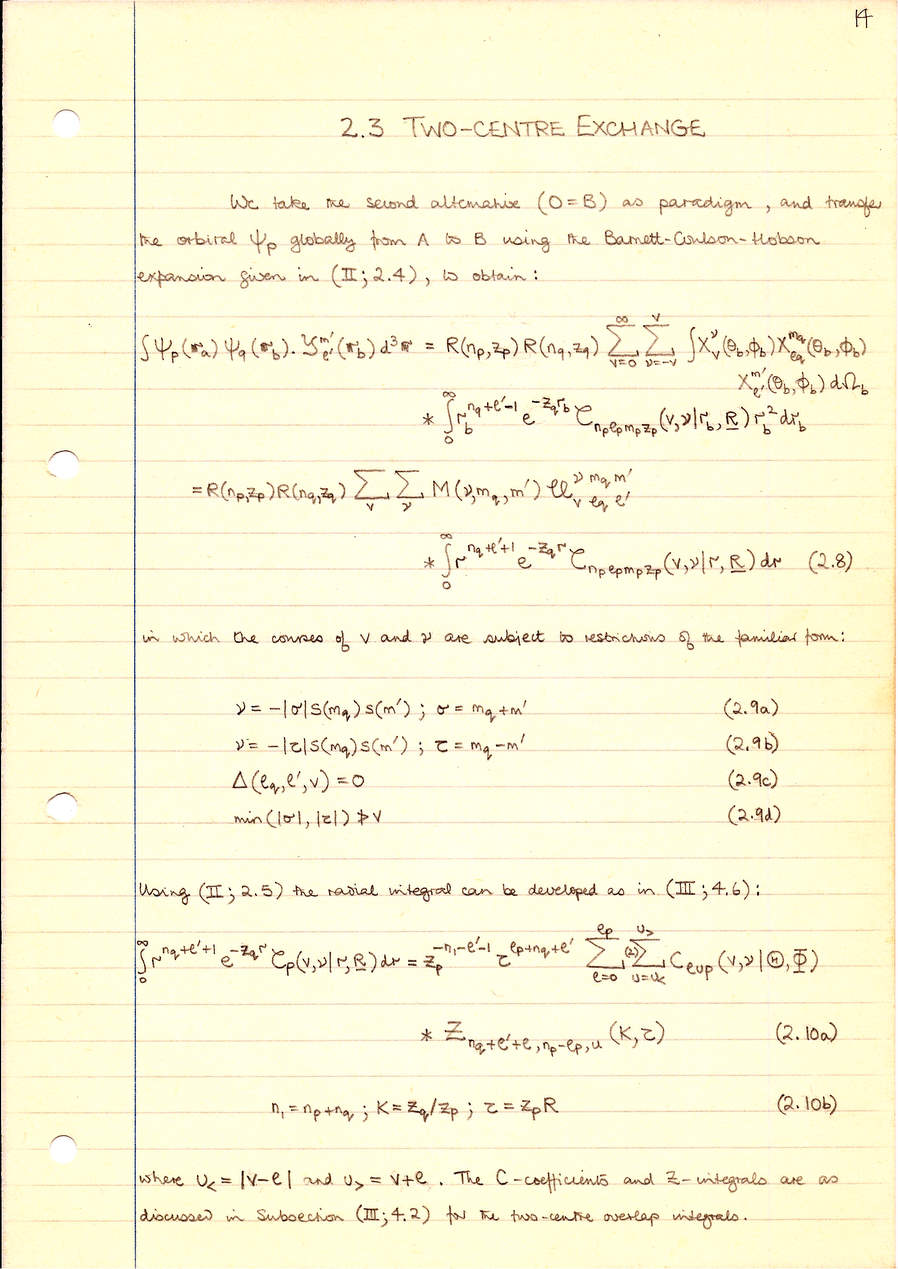 14
2.3 TWO-CENTRE EXCHANGE
We take the second alternative (O=B) as paradigm, and transfer
the orbital ψ_p globally from A to B using the Barnett-Coulson-Hobson
expansion given in (II; 2.4), to obtain:
∫ψ_p(𝐫_a) ψ_q(𝐫_b). 𝒴_{ℓ'}^{m'}(𝐫_b) d³𝐫 = R(n_p,z_p) R(n_q,z_q) ∑_{v=0}^{∞} ∑_{ν=-v}^{v} ∫X_v^ν(θ_b,ϕ_b) X_{ℓq}^{m_q}(θ_b,ϕ_b)
X_{ℓ'}^{m'}(θ_b,ϕ_b) dΩ_b
* ∫_0^∞ r_b^{n_q+ℓ'-1} e^{-z_q r_b} 𝒞_{n_p ℓ_p m_p z_p}(v,ν|r_b,R) r_b² dr_b
= R(n_p,z_p) R(n_q,z_q) ∑_v ∑_ν M(ν,m_q,m') 𝒰_{v ℓ_q ℓ'}^{ν m_q m'}
* ∫_0^∞ r^{n_q+ℓ'+1} e^{-z_q r} 𝒞_{n_p ℓ_p m_p z_p}(v,ν|r,R) dr (2.8)
in which the courses of v and ν are subject to restrictions of the familiar form:
ν = -|σ|S(m_q)S(m') ; σ = m_q+m' (2.9a)
ν = -|τ|S(m_q)S(m') ; τ = m_q-m' (2.9b)
Δ(ℓ_q,ℓ',v) = 0 (2.9c)
min(|σ|,|τ|) ≯ v (2.9d)
Using (II; 2.5) the radial integral can be developed as in (III; 4.6):
∫_0^∞ r^{n_q+ℓ'+1} e^{-z_q r} 𝒞_p(v,ν|r,R) dr = z_p^{-n_1-ℓ'-1} τ^{ℓ_p+n_q+ℓ'} ∑_{ℓ=0}^{ℓ_p} (2)∑_{u=u_<}^{u_>} C_{ℓup}(v,ν|Θ,Φ)
* Z_{n_q+ℓ'+ℓ, n_p-ℓ_p, u}(K,τ) (2.10a)
n_1 = n_p+n_q ; K = z_q/z_p ; τ = z_p R (2.10b)
where u_< = |v-ℓ| and u_> = v+ℓ. The C-coefficients and Z-integrals are as
discussed in Subsection (III; 4.2) for the two-centre overlap integrals.